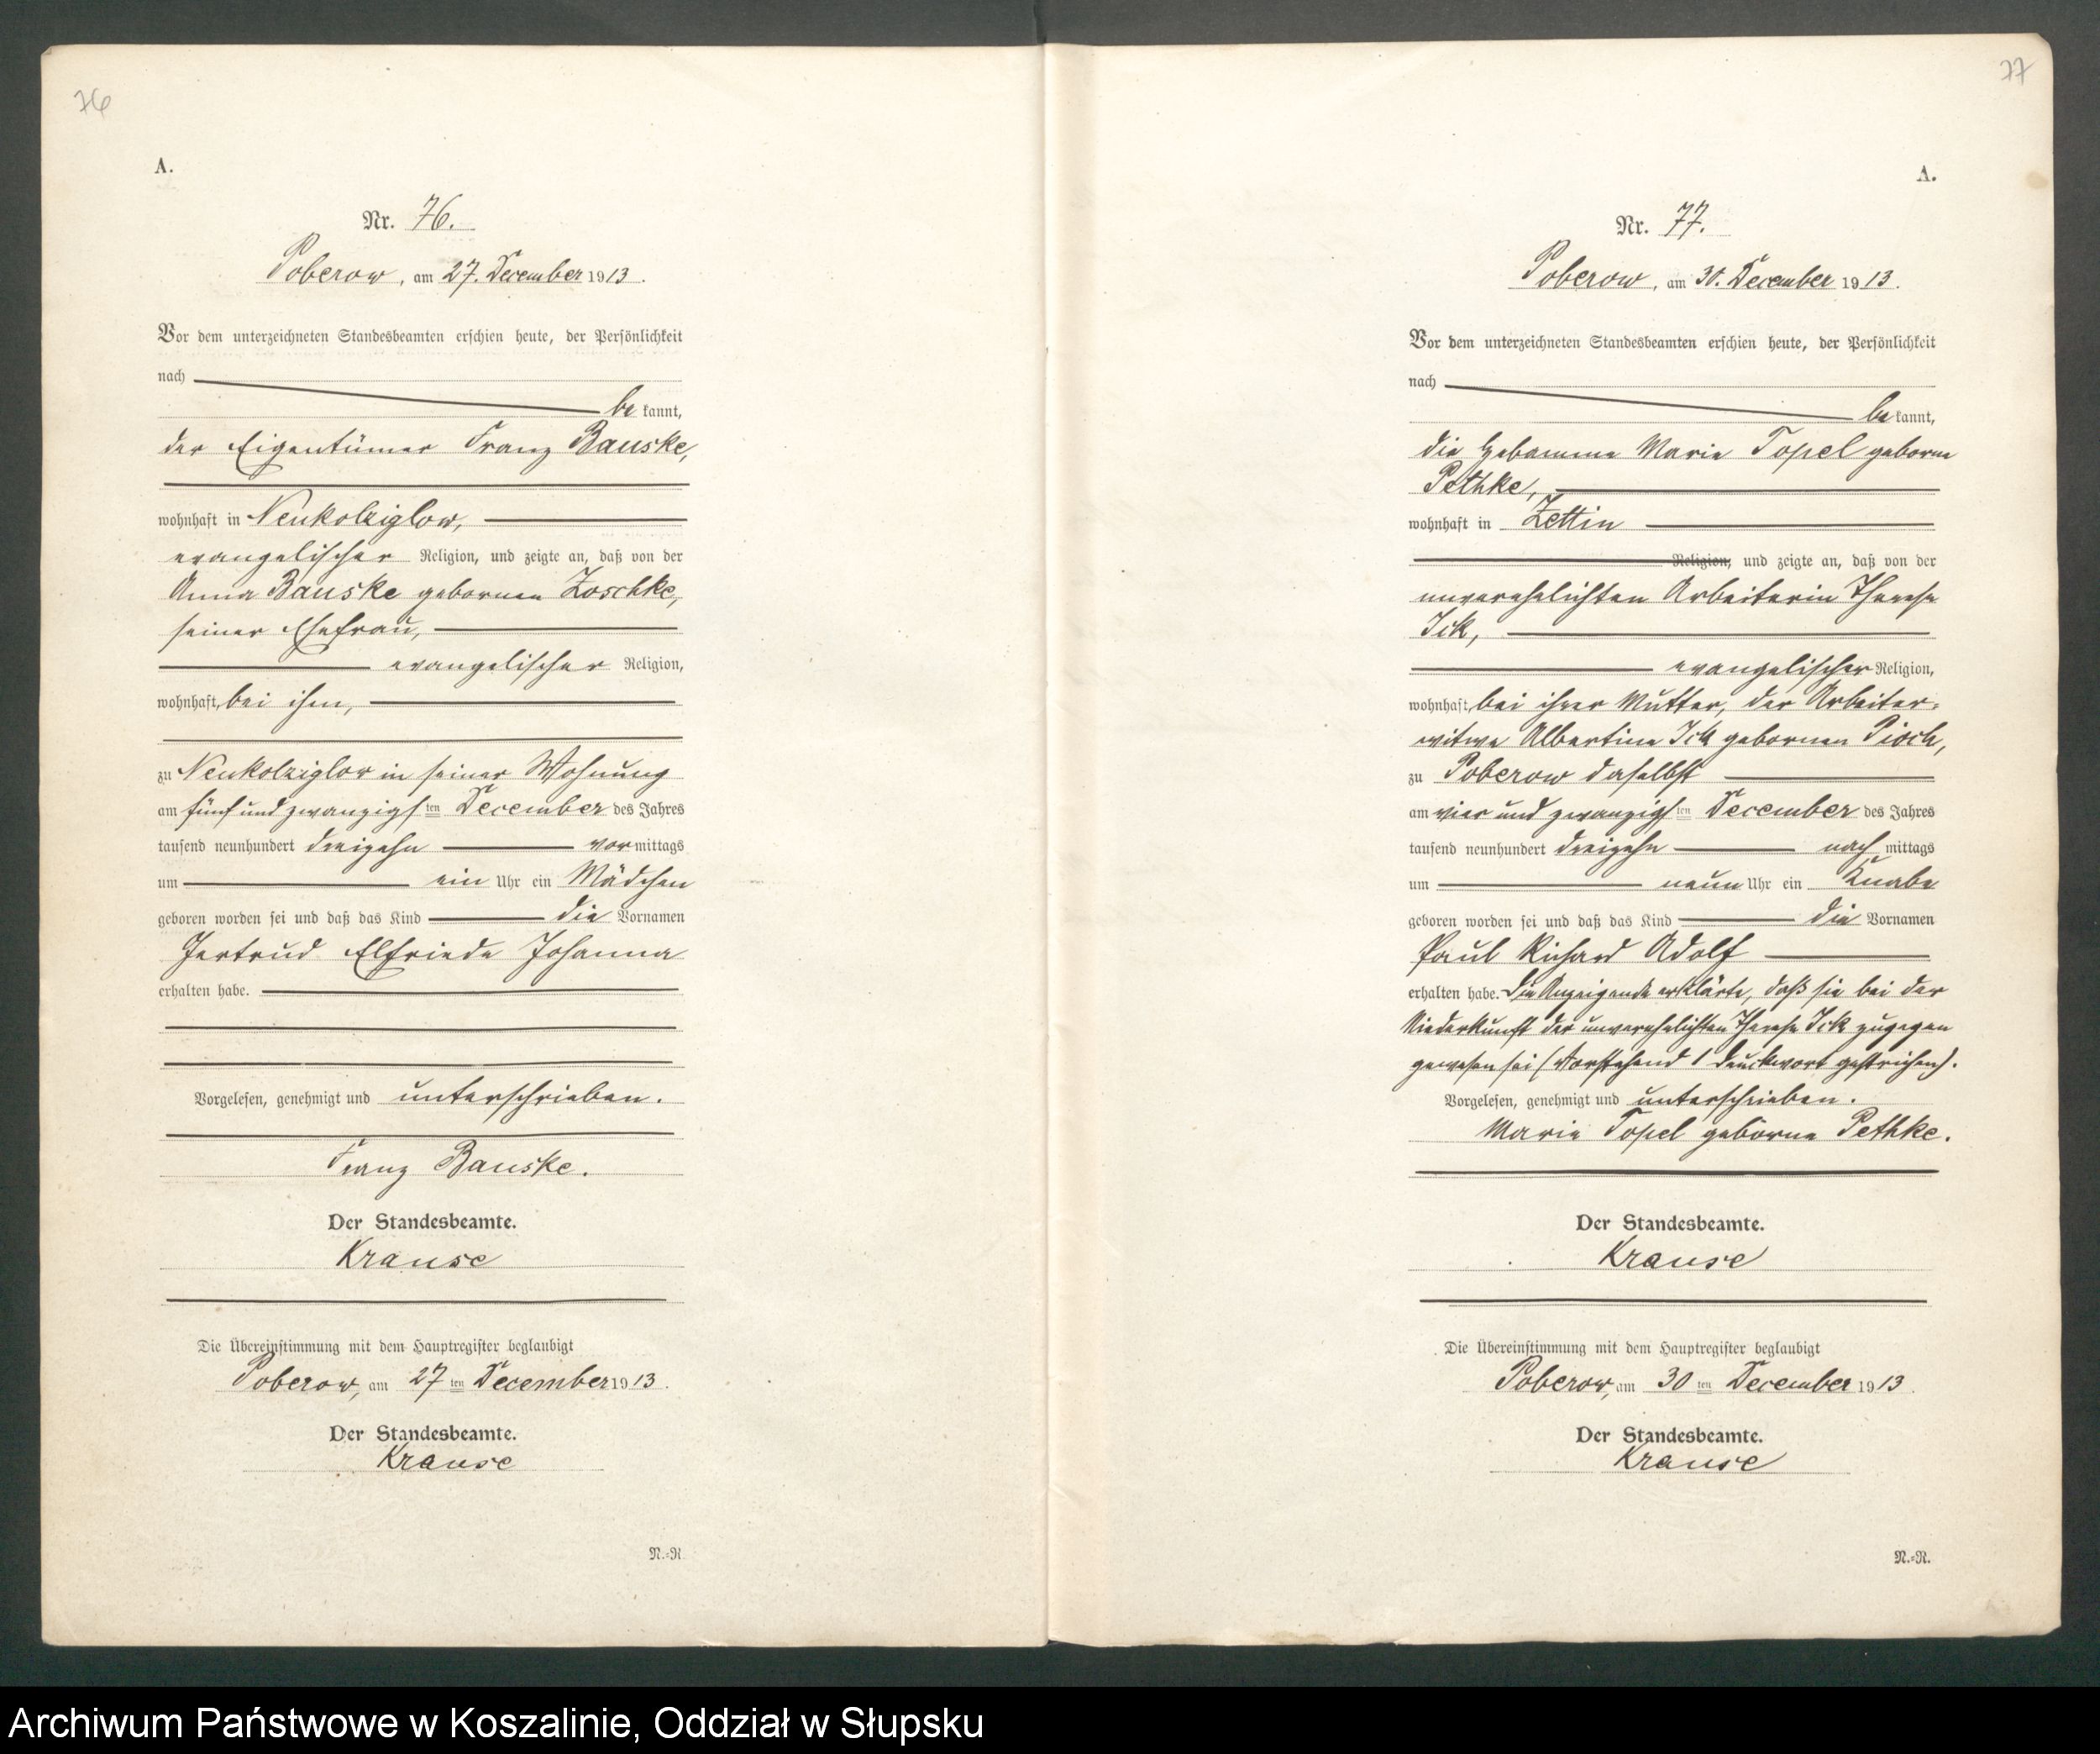 76
A.
Nr. 76.
Poberow, am 27. December 1913.
Vor dem unterzeichneten Standesbeamten erschien heute, der Persönlichkeit
nach
be kannt,
der Eigentümer Franz Bauske,
wohnhaft in Neukolziglow,
evangelischer Religion, und zeigte an, daß von der
Anna Bauske gebornen Zoschke,
seiner Ehefrau,
evangelischer Religion,
wohnhaft, bei ihm,
zu Neukolziglow in seiner Wohnung
am fünf und zwanzigsten December des Jahres
tausend neunhundert dreizehn vormittags
um ein Uhr ein Mädchen
geboren worden sei und daß das Kind die Vornamen
Gertrud Elfriede Johanna
erhalten habe.
Vorgelesen, genehmigt und unterschrieben.
Franz Bauske.
Der Standesbeamte.
Krause
Die Übereinstimmung mit dem Hauptregister beglaubigt
Poberow, am 27ten December 1913.
Der Standesbeamte.
Krause
N.-R.
77
A.
Nr. 77.
Poberow, am 30. December 1913.
Vor dem unterzeichneten Standesbeamten erschien heute, der Persönlichkeit
nach
be kannt,
die Hebamme Marie Topel geborne
Pethke,
wohnhaft in Zettin
Religion, und zeigte an, daß von der
unverehelichten Arbeiterin Therese
Ick,
evangelischer Religion,
wohnhaft, bei ihrer Mutter, der Arbeiter-
witwe Albertine Ick gebornen Pioch,
zu Poberow daselbst
am vier und zwanzigsten December des Jahres
tausend neunhundert dreizehn nachmittags
um neun Uhr ein Knabe
geboren worden sei und daß das Kind die Vornamen
Paul Richard Adolf
erhalten habe. Die Anzeigende erklärte, daß sie bei der
Niederkunft der unverehelichten Therese Ick zugegen
gewesen sei (Vorstehend 1 Druckwort gestrichen).
Vorgelesen, genehmigt und unterschrieben.
Marie Topel geborne Pethke.
Der Standesbeamte.
Krause
Die Übereinstimmung mit dem Hauptregister beglaubigt
Poberow, am 30ten December 1913.
Der Standesbeamte.
Krause
N.-R.
Archiwum Państwowe w Koszalinie, Oddział w Słupsku